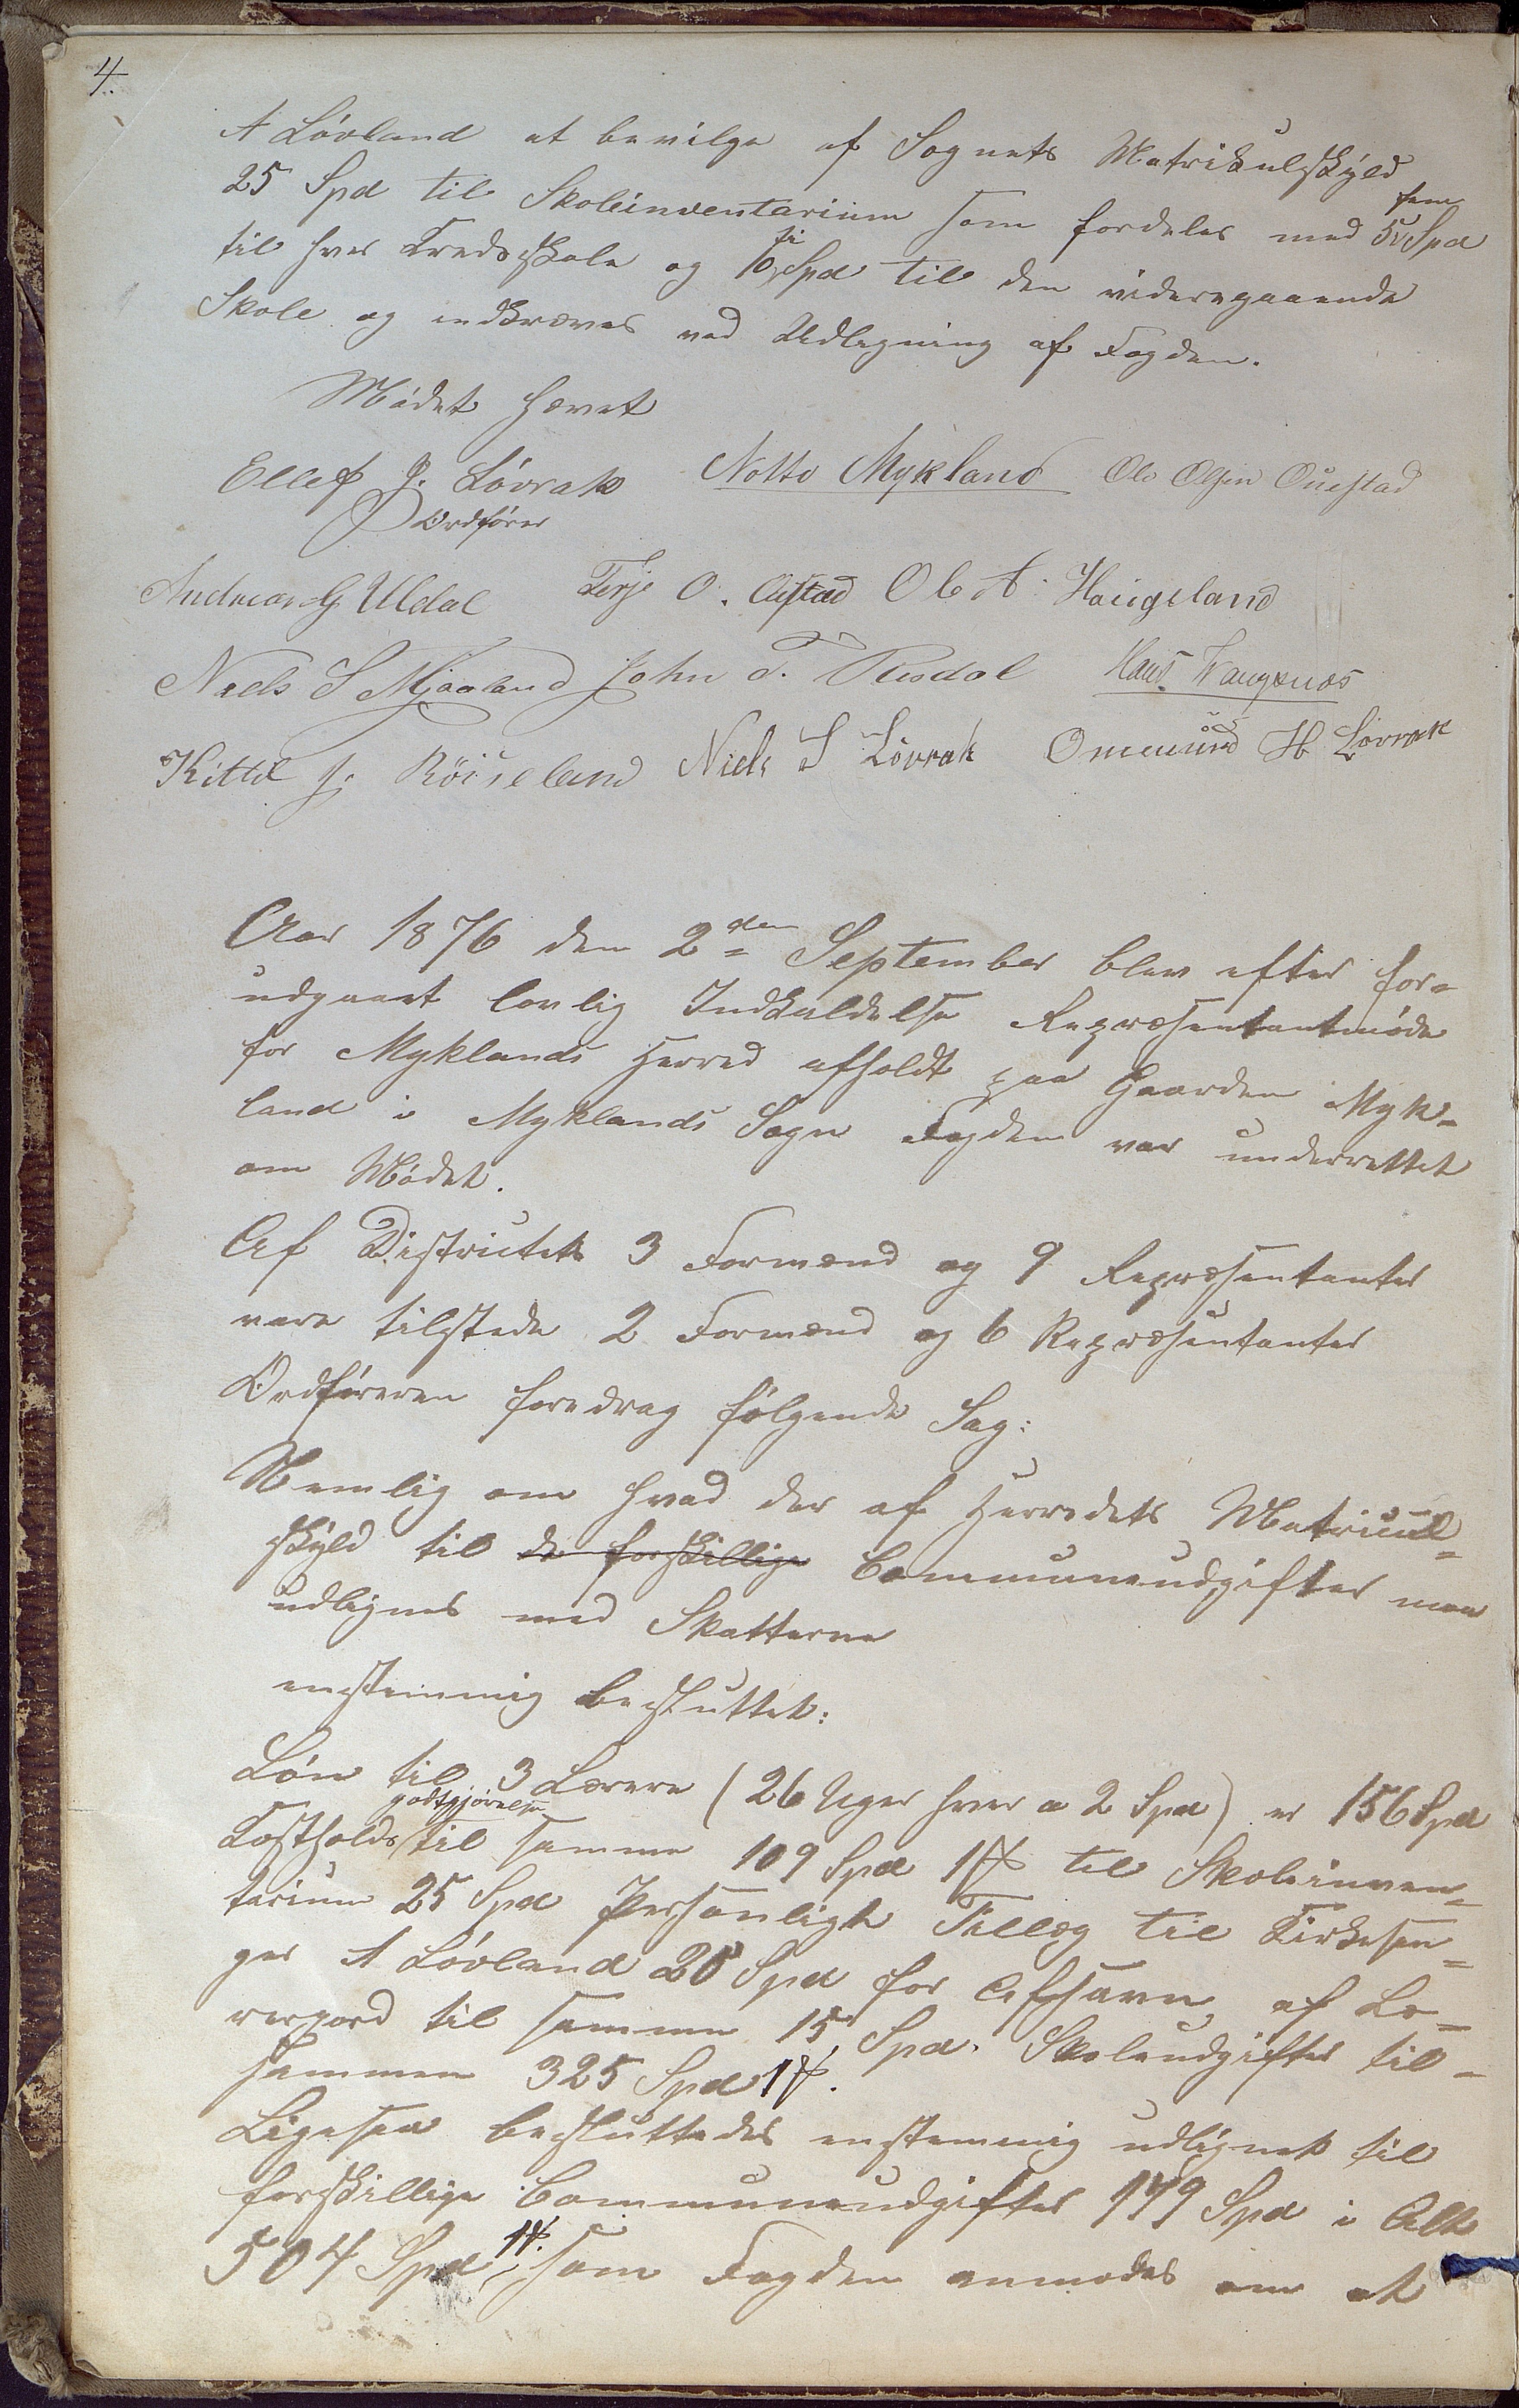 4.
A Løvland at bevilge af Sognets Matrikulskyld
25 Spd til Skoleinventarium som fordeles med 5 fem Spd
til hver Kredsskole og 10 ti Spd til den videregaaende
Skole og indkræves ved Udligning af Fogden.
Mødet hævet
Ellef J. Løvrak Notto Mykland Ole Olsen Ouestad
Ordfører
Andreas G Uldal Terje O. Austad Ole A. Haugeland
Niels S Mjaaland John T. Risdal Hans Vangsnæs
Kittil J. Røiseland Niels S Løvrak Ommund H Løvrak
Aar 1876 den 2den September blev efter for-
udgaaet lovlig Indkaldelse Repræsentantmøde
for Myklands Herred afholdt paa Gaarden Myk-
land i Myklands Sogn Fogden var underrettet
om Mødet.
Af Districtets 3 Formænd og 9 Repræsentanter
vare tilstede 2 Formænd og 6 Repræsentanter
Ordføreren foredrag følgende Sag:
Nemlig om hvad der af Herredets Matricul-
skyld til de forskillige Communeudgifter maa
udlignes med Skatterne
enstemmig besluttet:
Løn til 3 Lærere (26 Uger hver a 2 Spd) er 156 Spd
Kostholdsgodtgjørelse til samme 109 Spd 1 ₰ til Skoleinven-
tarium 25 Spd Personligt Tillæg til Kirkesan-
ger A Løvland 20 Spd for Afsavn af Læ-
rerpord til samme 15 Spd. Skoleudgifter til-
sammen 325 Spd 1 ₰.
Ligesaa besluttedes enstemmig udlignet til
forskillige Communeudgifter 179 Spd i Alt
504 Spd 1 ₰. som Fogden anmodes om at